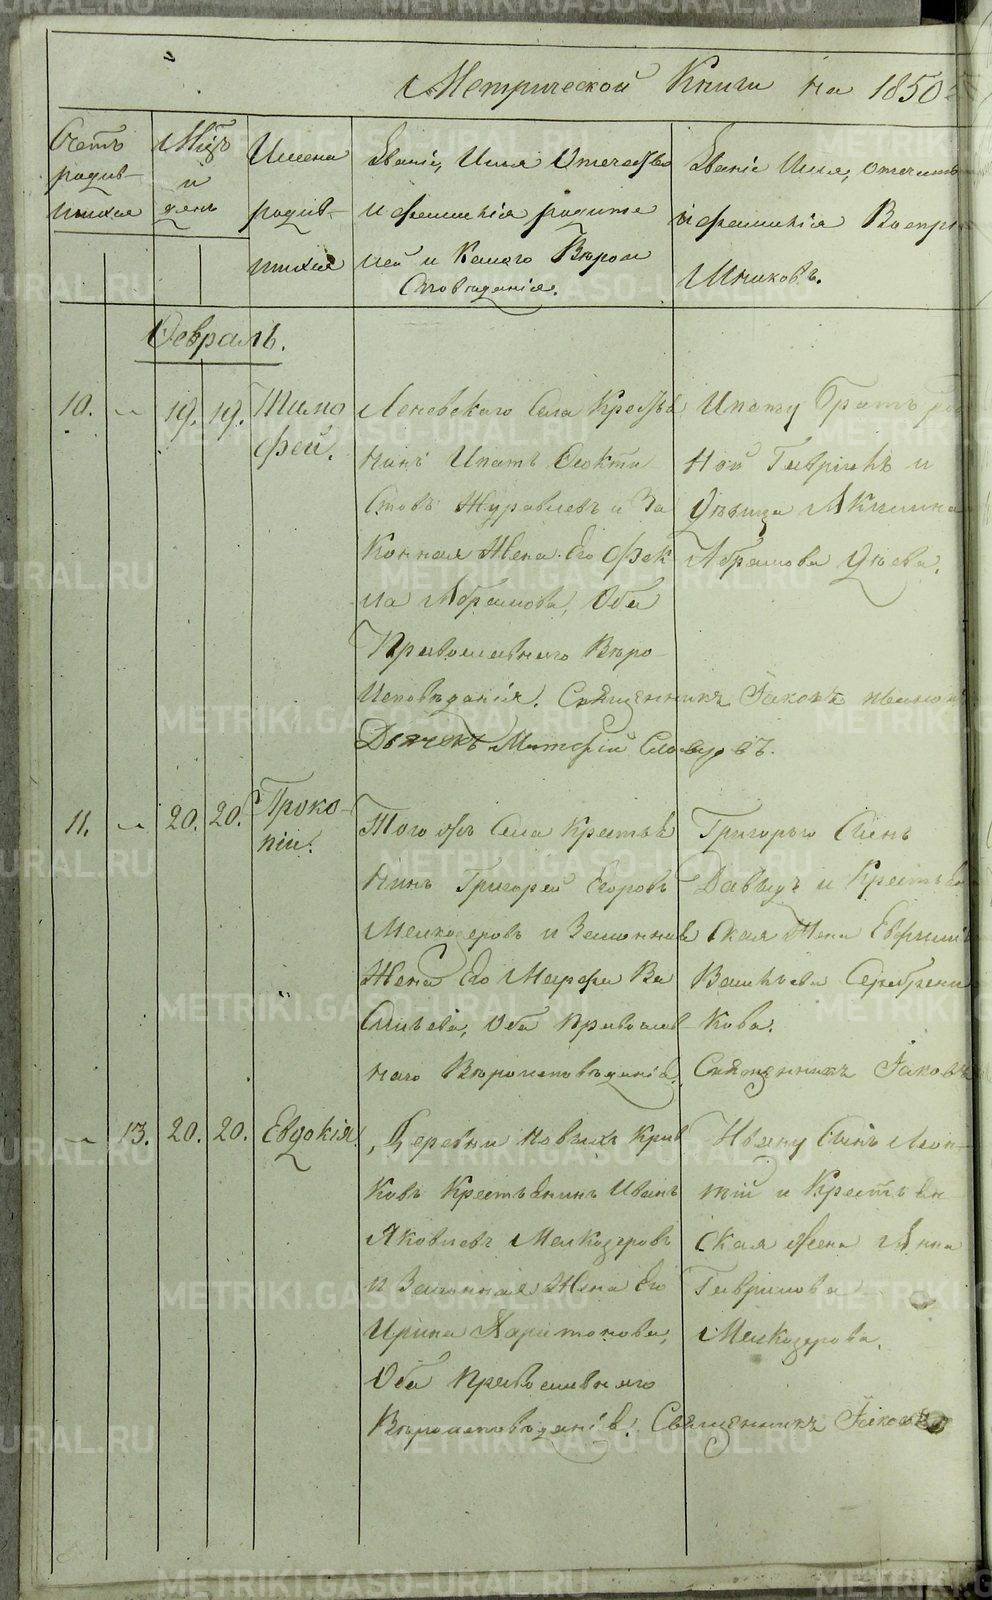 Метрической Книги на 1850
Счетъ родив- шихся
Мѣц и день
Имена родив- шихся
Званіе, Имя Отечество
и фамилія родите
лей и какого Вѣрои
споведанія.
Званіе Имя, отечеств
и фамилія Воспри
мниковъ.
Февраль.
10. 19. 19. Тимо
фей.
Леневскаго Села Кресть
нинъ Ипатъ Феокти
стовъ Журавлевъ и За
конная Жена Его Фек
ла Абрамова, Оба
Православнаго Вѣро
исповѣданія.
Ипату Братъ род
ной Гаврілъ и
Дѣвица Акилина
Абрамова
Священникъ Іаковъ
Дьячекъ
11. 20. 20. Проко-
пій.
Того жъ Села Крестья
нинъ Григорей Егоровъ
Мелкозеровъ и Законная
Жена Его Марфа Ва
сильева, Оба Православ-
наго Вѣроисповѣданія.
Григорью Сынъ
Давыдъ и Крестьян
ская Жена
Васильева Серебрени
кова.
Священникъ Іаковъ
13. 20. 20. Евдокія
Деревни Новыхъ Крив
ковъ Крестьянинъ Иванъ
Яковлевъ Мелкозеровъ
и Законная Жена Его
Ирина Харитонова,
Оба Православнаго
Вѣроисповѣданія.
Ивану Сынъ Леон-
тій и Крестьян-
ская жена Анна
Гаврилова
Мелкозерова.
Священникъ Іаковъ
METRIKI.GASO-URAL.RU